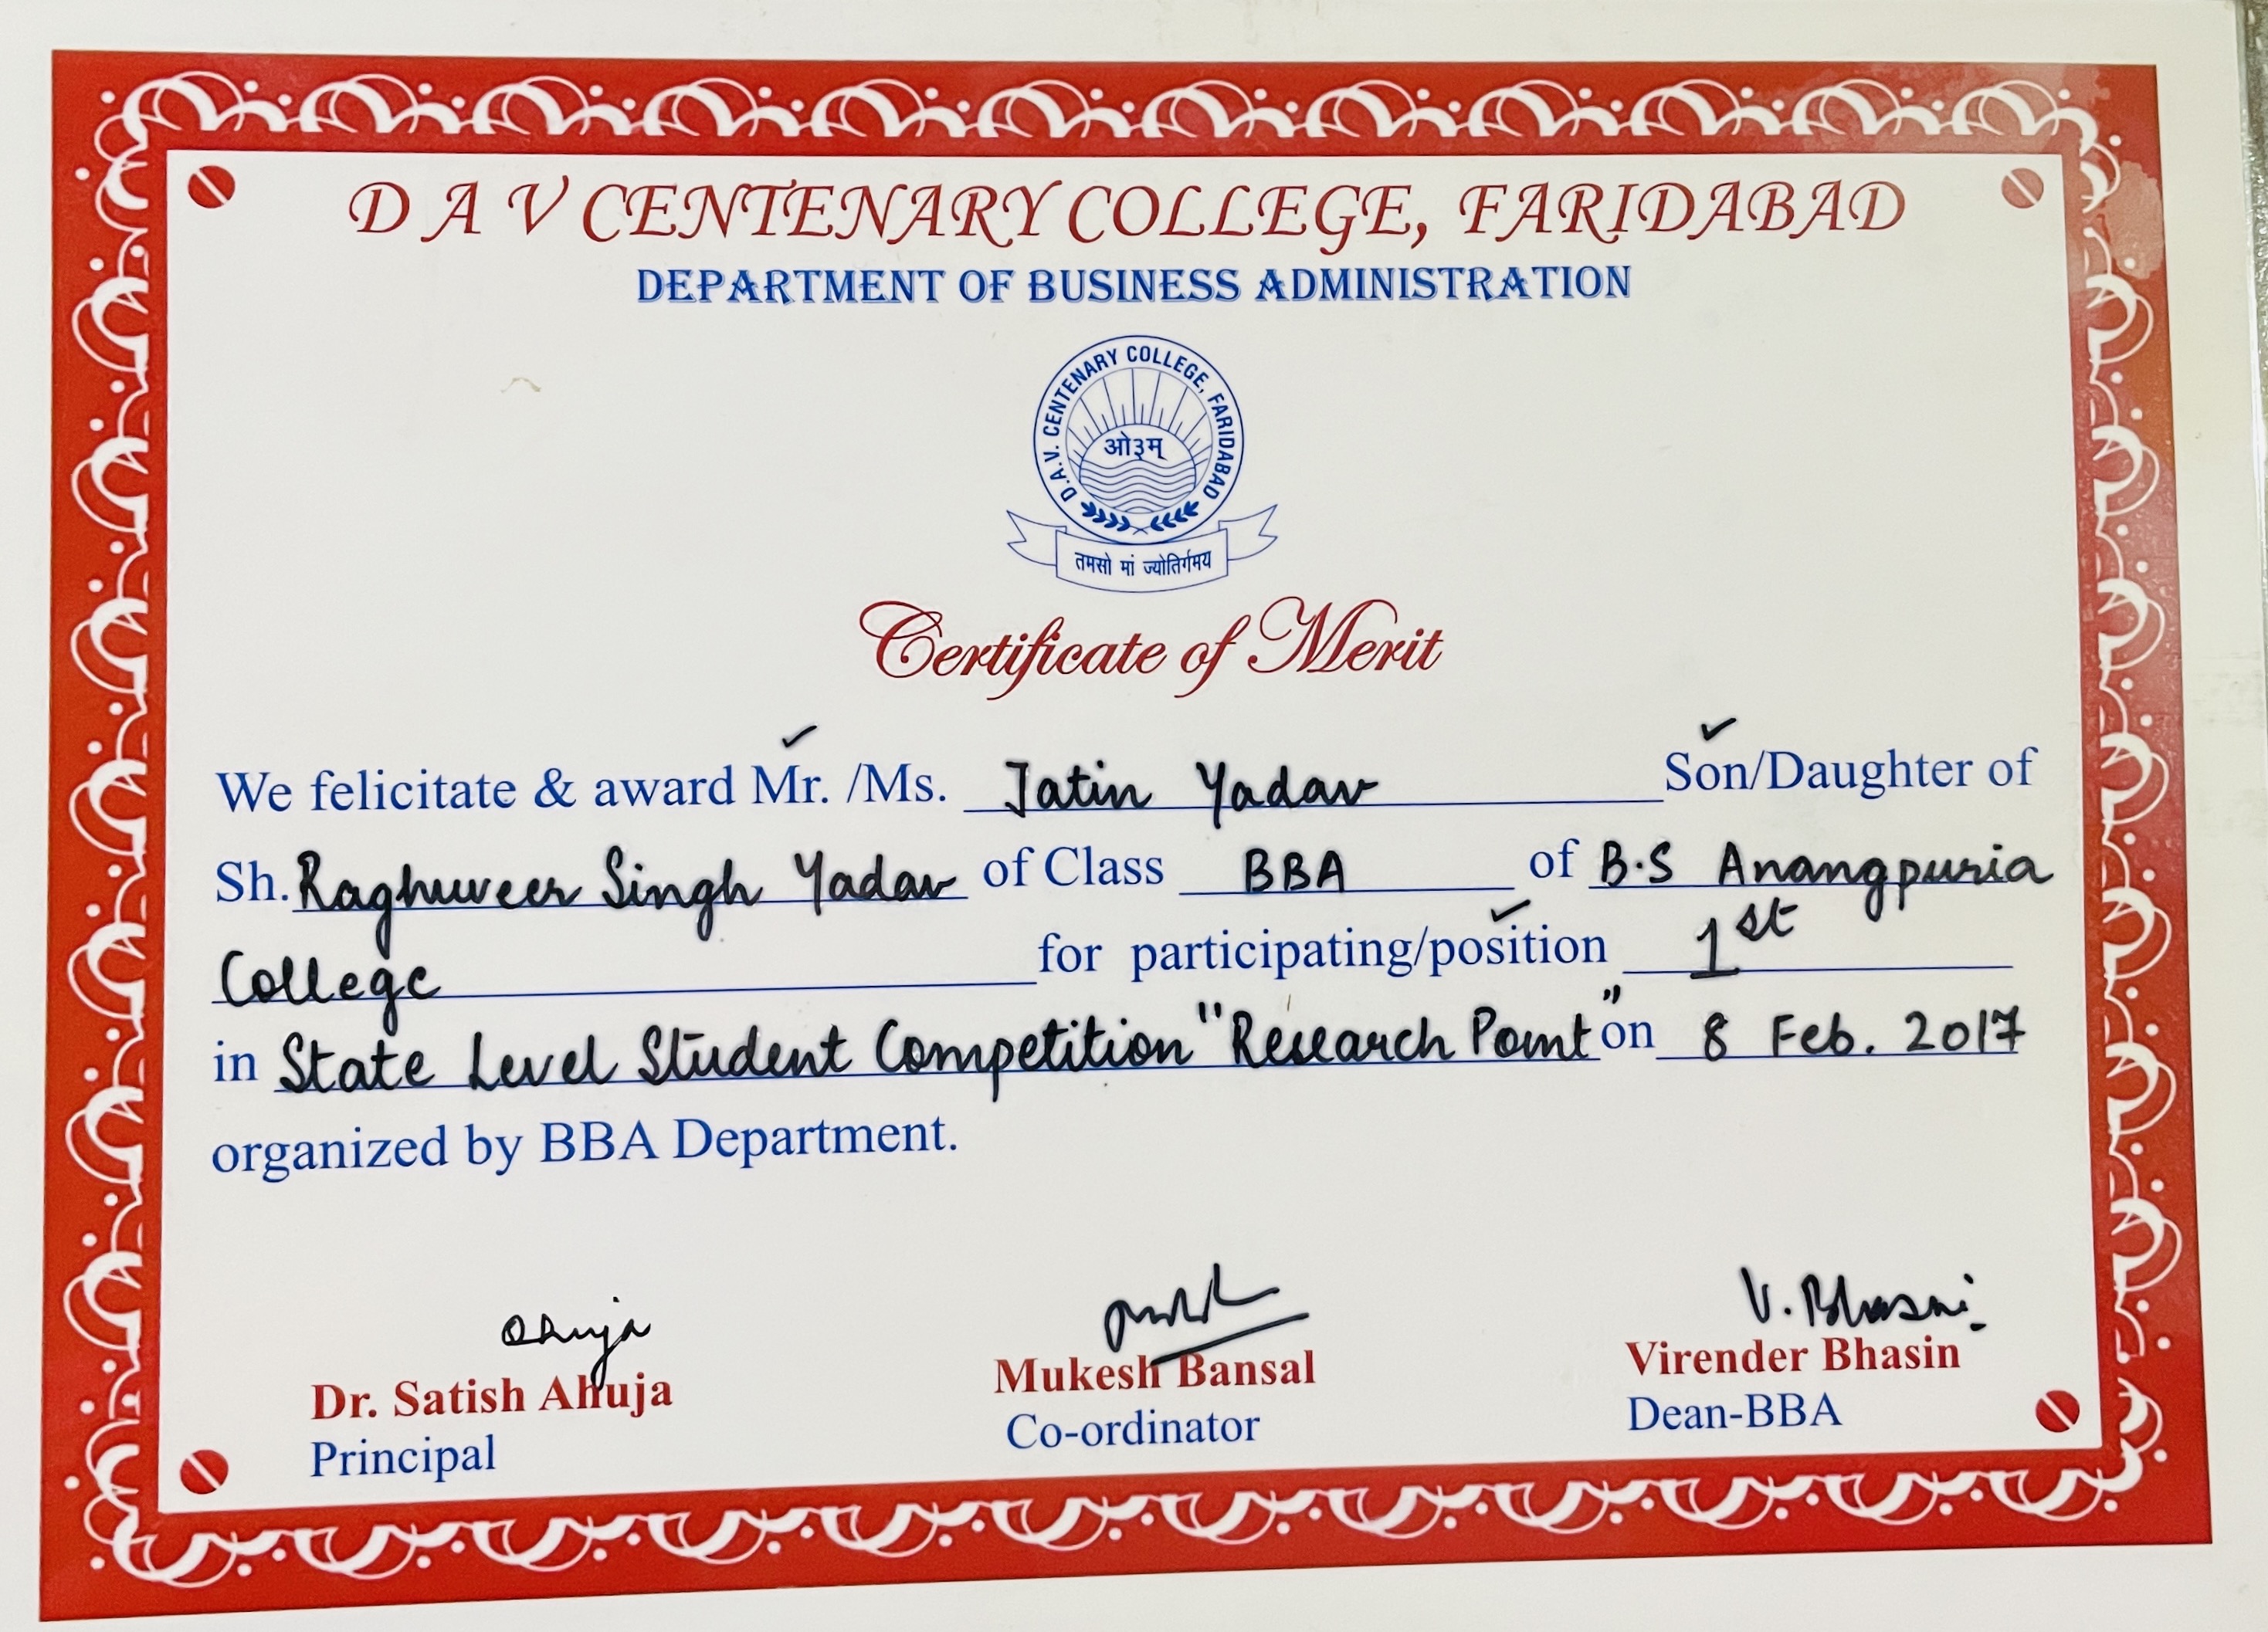 D A V CENTENARY COLLEGE, FARIDABAD
DEPARTMENT OF BUSINESS ADMINISTRATION
D.A.V. CENTENARY COLLEGE, FARIDABAD
ओ३म्
तमसो मां ज्योतिर्गमय
Certificate of Merit
We felicitate & award Mr. /Ms. Jatin Yadav Son/Daughter of
Sh. Raghuveer Singh Yadav of Class BBA of B.S Anangpuria
College for participating/position 1st
in State Level Student Competition "Research Point" on 8 Feb. 2017
organized by BBA Department.
Ahuja V. Bhasin
Dr. Satish Ahuja Mukesh Bansal Virender Bhasin
Principal Co-ordinator Dean-BBA